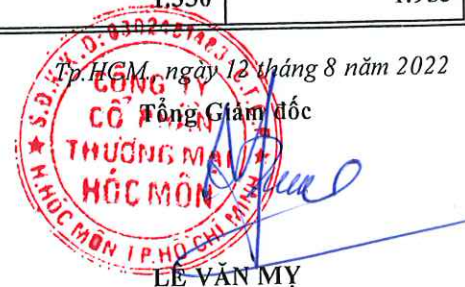 1.550
Tp.HCM., ngày 12 tháng 8 năm 2022
Tổng Giám đốc
CÔNG TY
CỔ PHẦN
THƯƠNG MẠI
HÓC MÔN
H.HÓC MÔN T.P.HỒ CHÍ MINH
LÊ VĂN MỴ